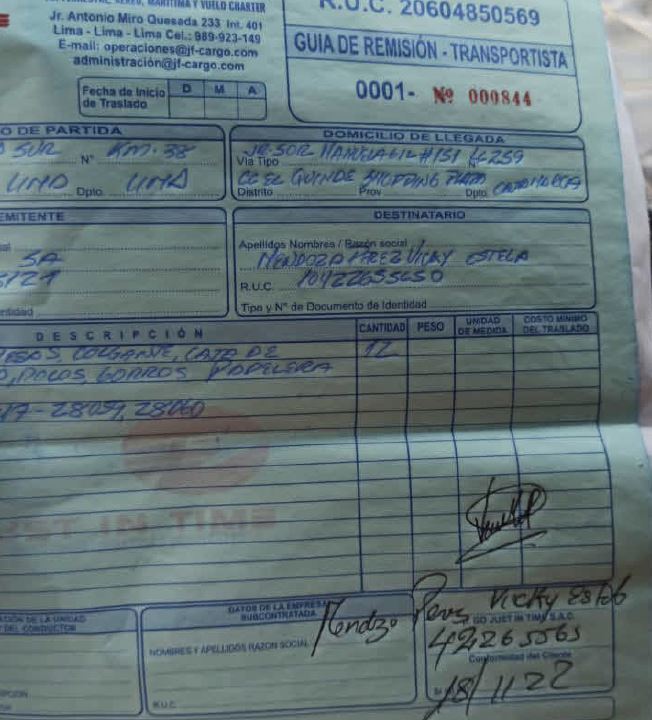 TERRESTRE, AEREO, MARITIMA Y VUELO CHARTER
Jr. Antonio Miro Quesada 233 Int. 401
Lima - Lima - Lima Cel.: 989-923-149
E-mail: operaciones@jf-cargo.com
administración@jf-cargo.com
R.U.C. 20604850569
GUIA DE REMISIÓN - TRANSPORTISTA
0001- Nº 000844
Fecha de Inicio de Traslado D M A
O DE PARTIDA
SUR N° KM. 38
LIMA Dpto. LIMA
DOMICILIO DE LLEGADA
Via Tipo JR. SOR MANUELA GIL #151
CC EL QUINDE SHOPPING PLAZA CAJAMARCA
Distrito Prov. Dpto.
EMITENTE
SA
DESTINATARIO
Apellidos Nombres / Razón social
MENDOZA PEREZ VICKY ESTELA
R.U.C. 10422655650
Tipo y N° de Documento de Identidad
DESCRIPCIÓN CANTIDAD PESO UNIDAD DE MEDIDA COSTO MINIMO DEL TRASLADO
COLGANTE, CAJA DE 12
POLOS, GORROS PAPELERA
28059, 28060
JUST IN TIME
DATOS DE LA EMPRESA SUBCONTRATADA
NOMBRES Y APELLIDOS RAZON SOCIAL
R.U.C.
DEL CONDUCTOR
Vicky Estela
GO JUST IN TIME S.A.C.
42265565
Conformidad del Cliente
18/11 22